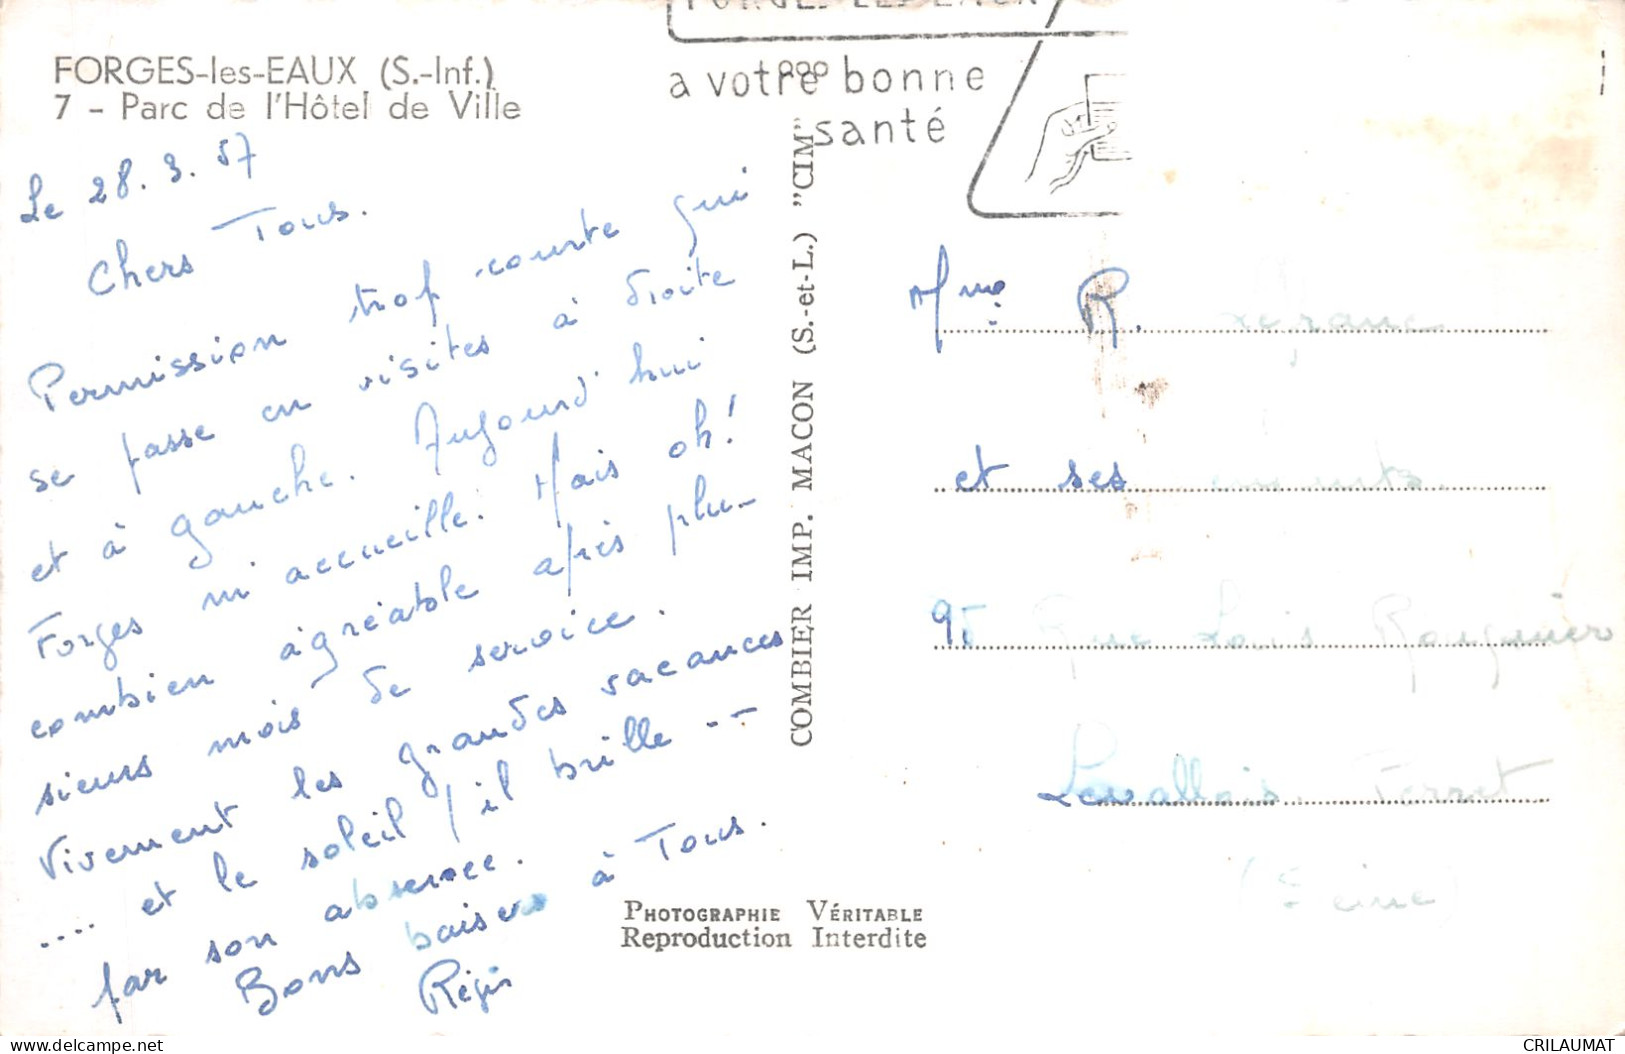 FORGES-les-EAUX (S.-Inf.)
7 - Parc de l'Hôtel de Ville
FORGES LES EAUX
a votre bonne
santé
Le 28.3.57
Chers Tous.
Permission trop courte qui
se passe en visites à droite
et à gauche. Aujourd'hui
Forges m'accueille. Mais oh!
combien agréable après plu-
sieurs mois de service.
Vivement les grandes vacances
.... et le soleil s'il brille --
par son absence.
Bons baisers à Tous.
Régis
COMBIER IMP. MACON (S.-et-L.) "CIM"
PHOTOGRAPHIE VÉRITABLE
Reproduction Interdite
Mme R. Lefranc
et ses
95 Rue Louis Rouquier
Levallois-Perret
(Seine)
CRILAUMAT